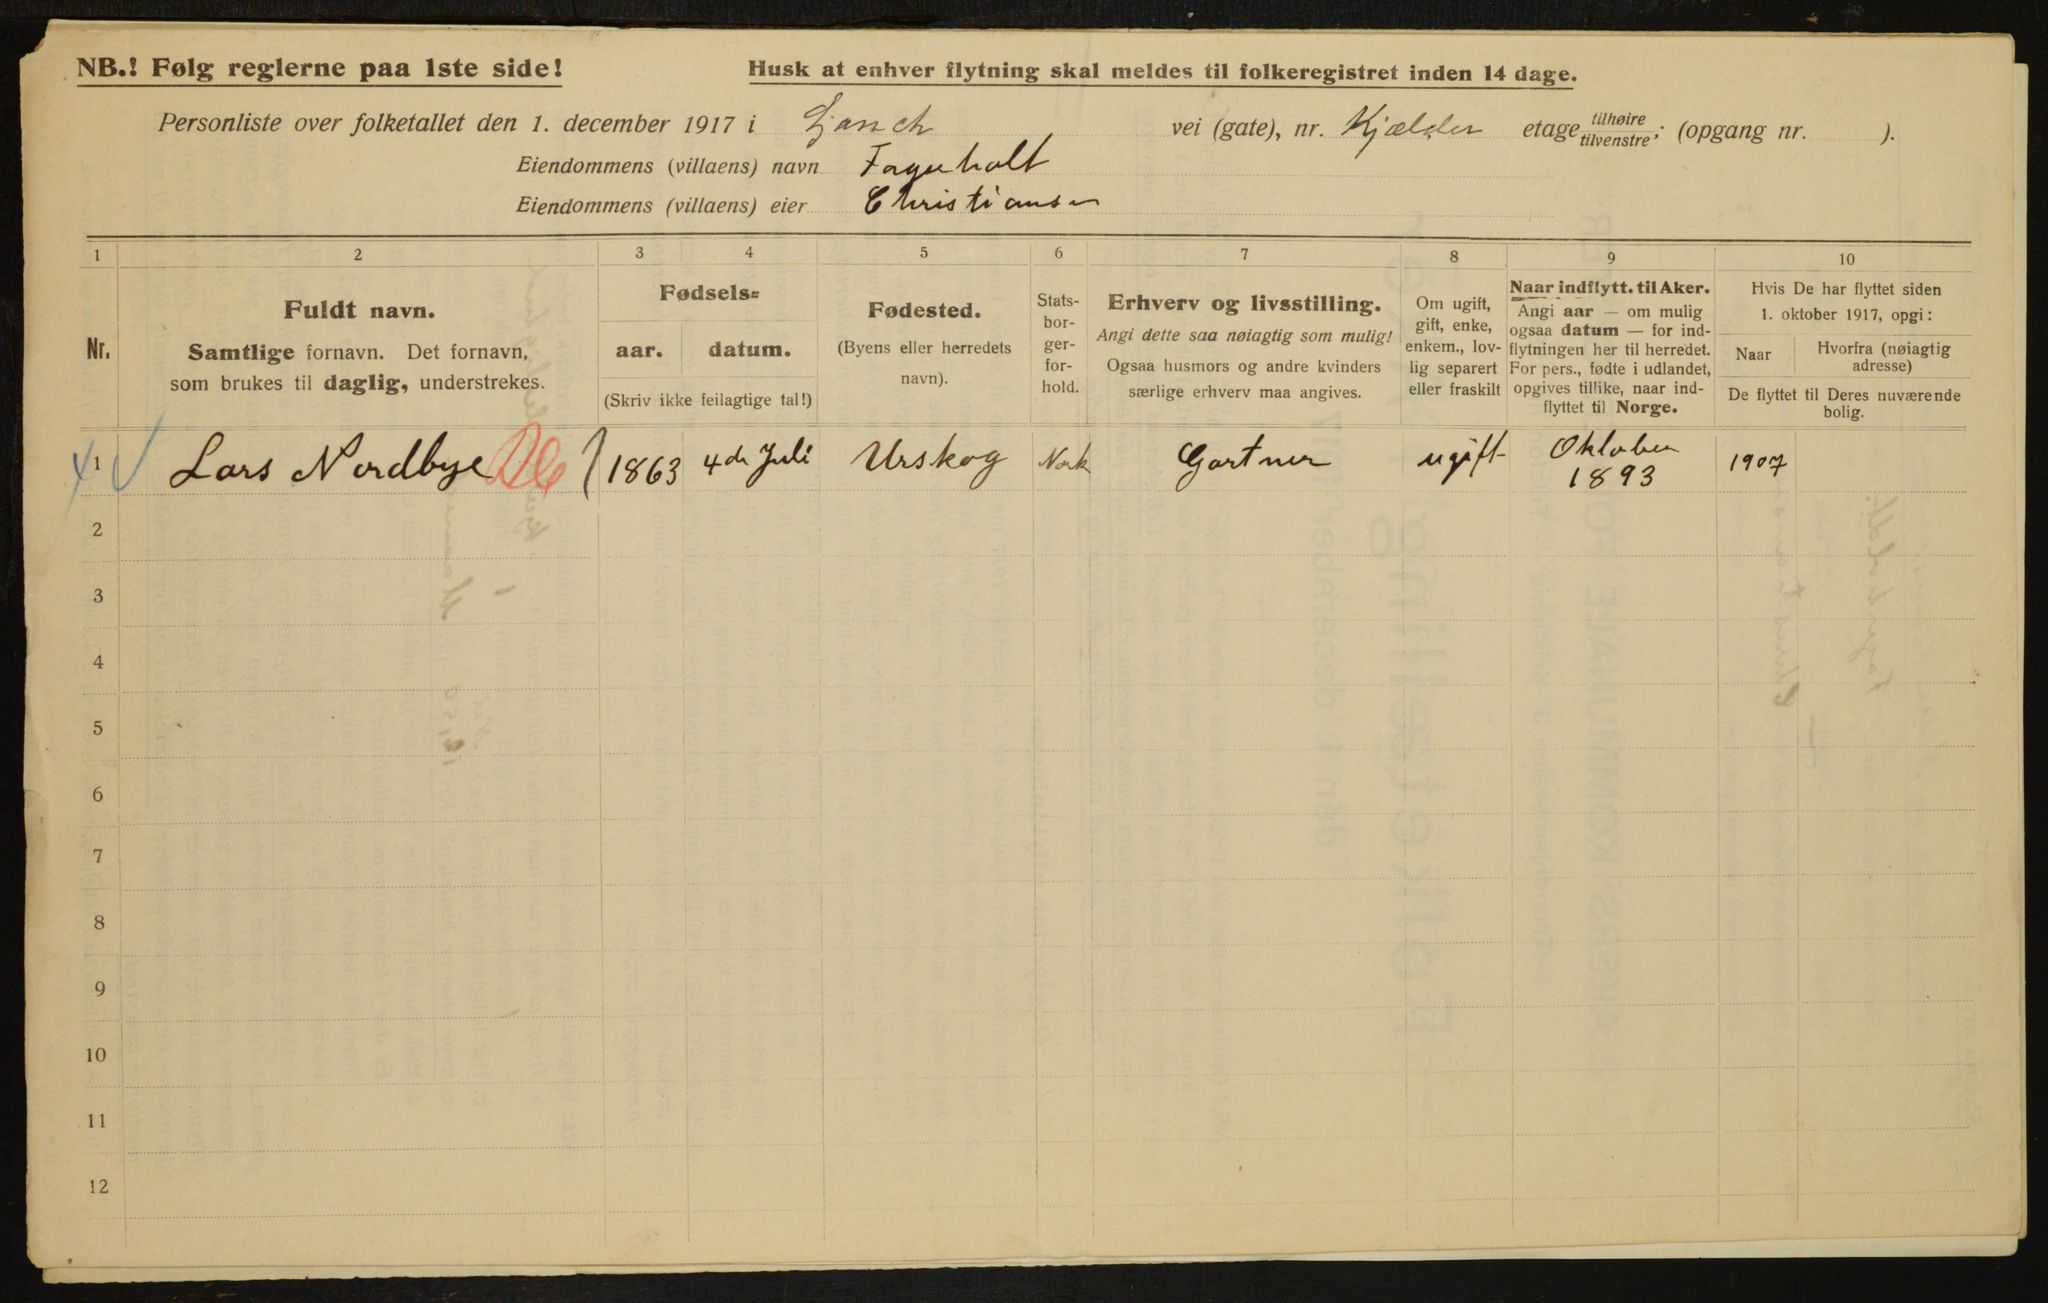 NB.! Følg reglerne paa 1ste side!
Husk at enhver flytning skal meldes til folkeregistret inden 14 dage.
Personliste over folketallet den 1. december 1917 i vei (gate), nr. Kjælder etage tilhøire tilvenstre; (opgang nr. ).
Eiendommens (villaens) navn Fagerholt
Eiendommens (villaens) eier Christiansen
1 2 3 4 5 6 7 8 9 10
Nr.
Fuldt navn.
Samtlige fornavn. Det fornavn,
som brukes til daglig, understrekes.
Fødsels=
aar. datum.
(Skriv ikke feilagtige tal!)
Fødested.
(Byens eller herredets
navn).
Stats-
bor-
ger-
for-
hold.
Erhverv og livsstilling.
Angi dette saa nøiagtig som mulig!
Ogsaa husmors og andre kvinders
særlige erhverv maa angives.
Om ugift,
gift, enke,
enkem., lov-
lig separert
eller fraskilt
Naar indflytt. til Aker.
Angi aar — om mulig
ogsaa datum — for ind-
flytningen her til herredet.
For pers., fødte i utlandet,
opgives tillike, naar ind-
flyttet til Norge.
Hvis De har flyttet siden
1. oktober 1917, opgi:
Naar
Hvorfra (nøiagtig
adresse)
De flyttet til Deres nuværende
bolig.
1 Lars Nordbye 1863 4de Juli Urskog Norsk Gartner ugift Oktober 1907
1893
2
3
4
5
6
7
8
9
10
11
12